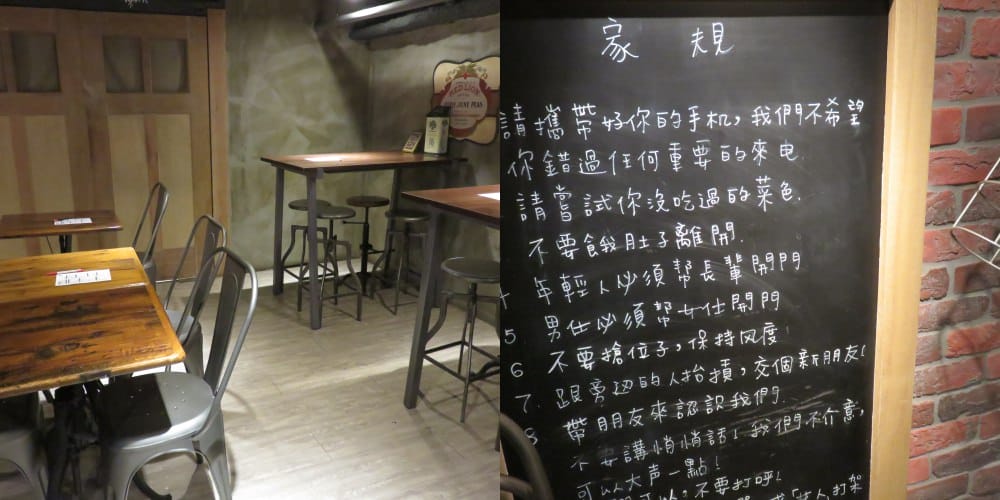 RED LION
家 規
請攜帶好你的手机，我們不希望
你錯過任何重要的來电.
請嘗試你沒吃過的菜色.
不要餓肚子離開.
年輕人必須帮長輩開門
5 男仕必須帮女仕開門
6 不要搶位子，保持风度!
7. 跟旁边的人抬摃，交個新朋友!
8 帶朋友來認識我們.
不要講悄悄話! 我們不介意，
可以大声一點!
可以，不要打呼!
打架